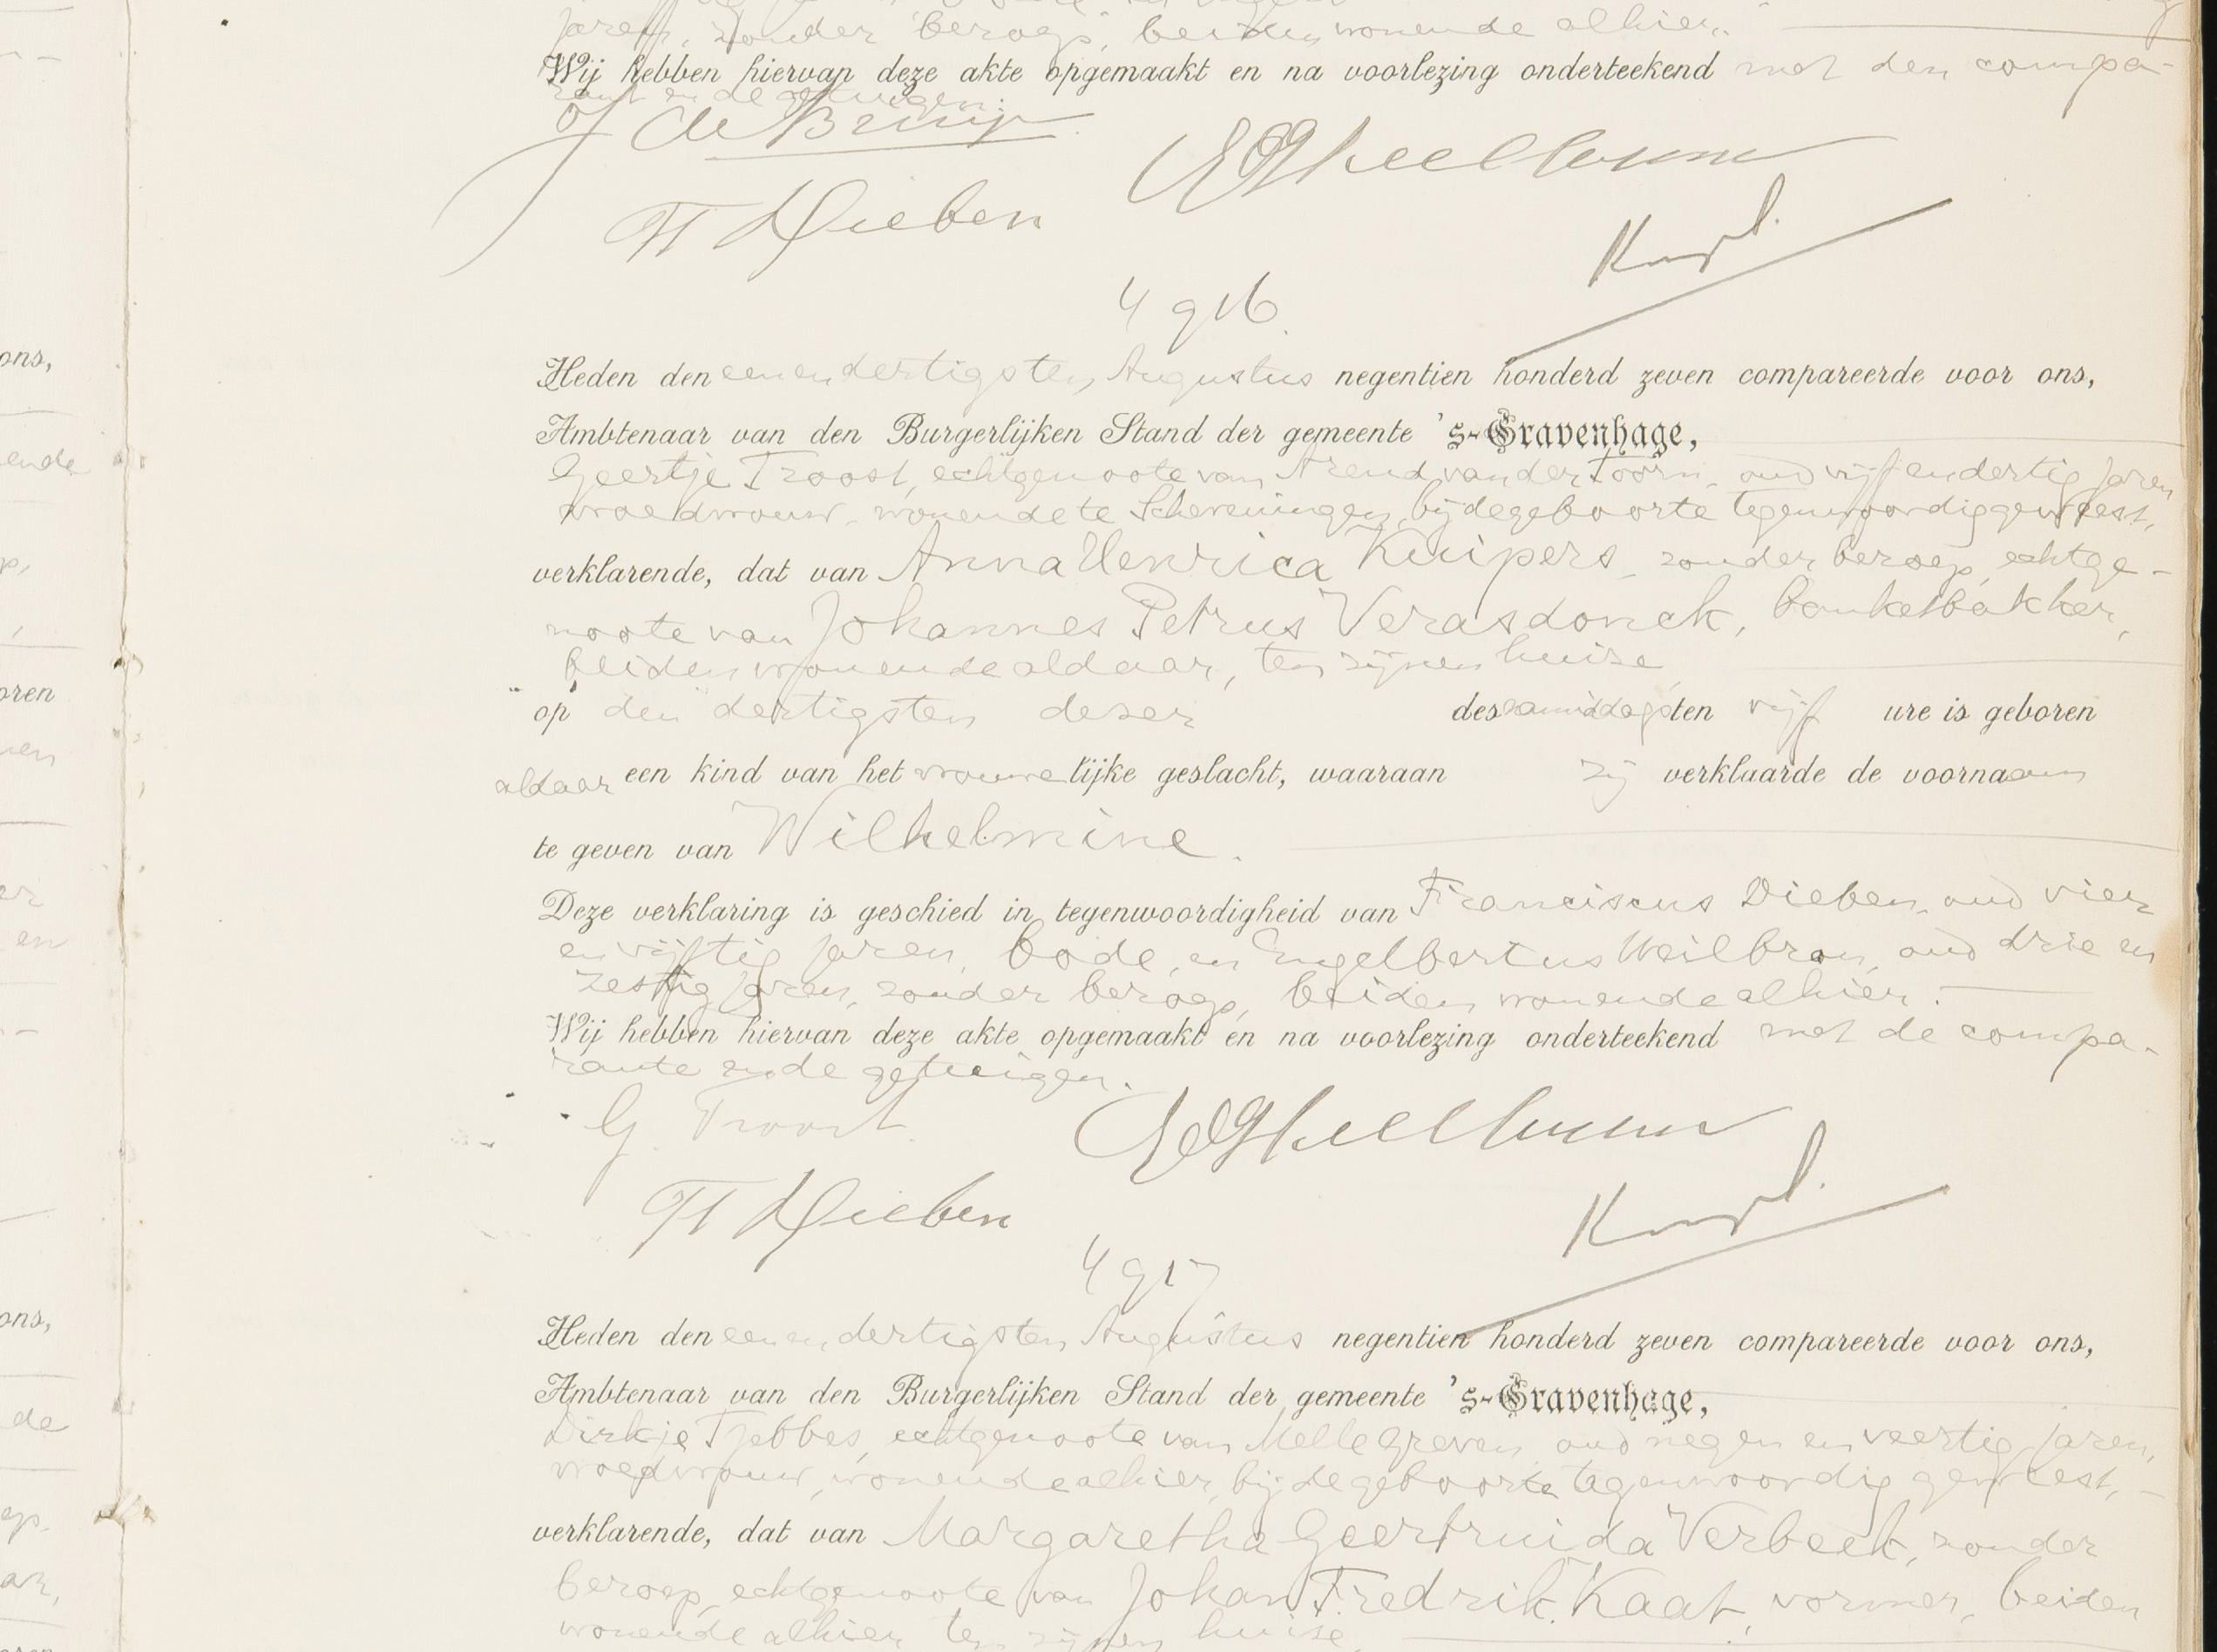 jaren, zonder beroep, beiden wonende alhier.
Wij hebben hiervan deze akte opgemaakt en na voorlezing onderteekend met den compa-
rant en de getuigen.
J de Bruijn
Fs Dieben
4916.
Heden den eenendertigsten Augustus negentien honderd zeven compareerde voor ons,
Ambtenaar van den Burgerlijken Stand der gemeente 's-Gravenhage,
Geertje Troost, echtgenoote van Arend van der Toorn, oud vijf en dertig jaren
vroedvrouw, wonende te Scheveningen, bij de geboorte tegenwoordig geweest,
verklarende, dat van Anna Henrica Kuipers, zonder beroep, echtge-
noote van Johannes Petrus Verasdonck, banketbakker,
beiden wonende aldaar, ten zijnen huize
op den dertigsten dezer des namiddags ten vijf ure is geboren
aldaar een kind van het vrouwelijke geslacht, waaraan zij verklaarde de voornaam
te geven van Wilhelmine.
Deze verklaring is geschied in tegenwoordigheid van Franciscus Dieben, oud vier
en vijftig jaren, bode, en Engelbertus Weilbron, oud drie en
zestig jaren, zonder beroep, beiden wonende alhier.
Wij hebben hiervan deze akte opgemaakt en na voorlezing onderteekend met de compa-
rante en de getuigen.
G. Troost
Fs Dieben
4917
Heden den eenendertigsten Augustus negentien honderd zeven compareerde voor ons,
Ambtenaar van den Burgerlijken Stand der gemeente 's-Gravenhage,
Dirkje Tjebbes, echtgenoote van Melle Greven, oud negen en veertig jaren,
vroedvrouw, wonende alhier, bij de geboorte tegenwoordig geweest,
verklarende, dat van Margaretha Geertruida Verbeek, zonder
beroep, echtgenoote van Johan Fredrik Kaat, vormer, beiden
wonende alhier ten zijnen huize